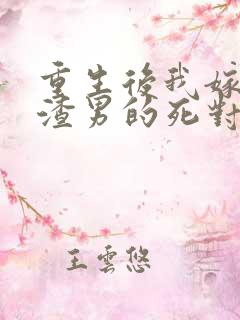 重生後我嫁
渣男的死對
王雲悠